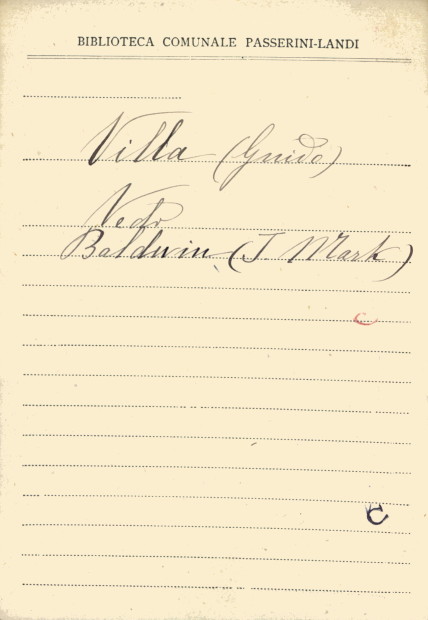 BIBLIOTECA COMUNALE PASSERINI-LANDI
Villa (Guido)
Vedi
Baldwin (J. Mark)
C
C